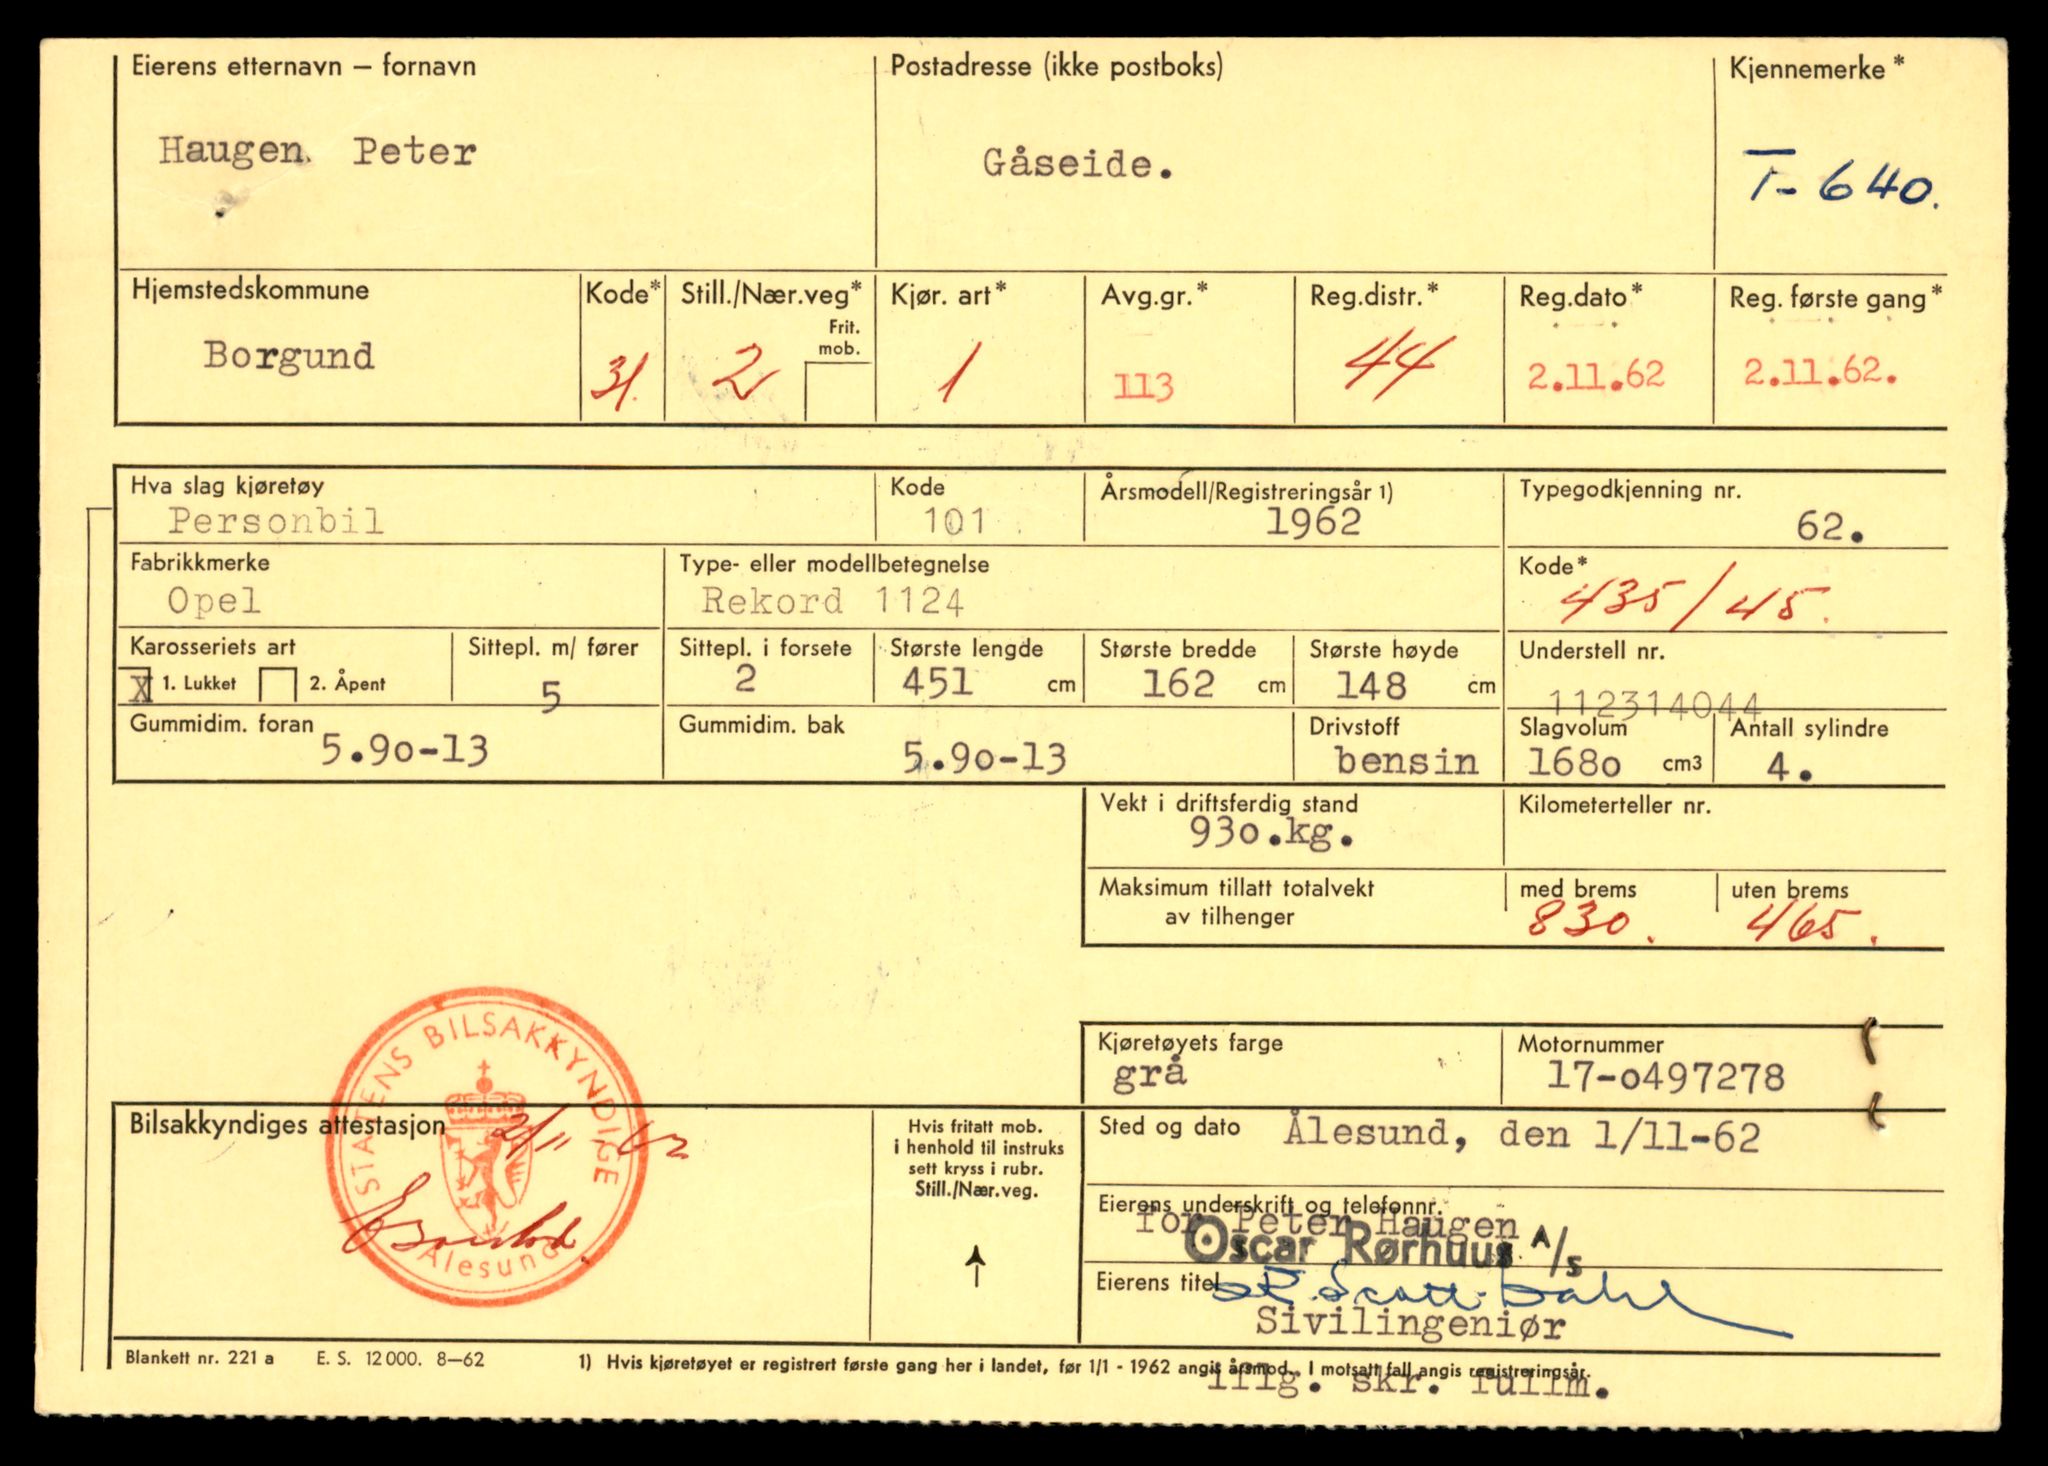 Eierens etternavn – fornavn
Haugen Peter
Postadresse (ikke postboks)
Gåseide.
Kjennemerke *
T-640.
Hjemstedskommune
Borgund
Kode*
31.
Still./Nær.veg*
2
Frit. mob.
Kjør. art*
1
Avg.gr.*
113
Reg.distr.*
44
Reg.dato*
2.11.62
Reg. første gang*
2.11.62.
Hva slag kjøretøy
Personbil
Kode
101
Årsmodell/Registreringsår 1)
1962
Typegodkjenning nr.
62.
Fabrikkmerke
Opel
Type- eller modellbetegnelse
Rekord 1124
Kode*
435/45.
Karosseriets art
X 1. Lukket 2. Åpent
Sittepl. m/ fører
5
Sittepl. i forsete
2
Største lengde
451 cm
Største bredde
162 cm
Største høyde
148 cm
Understell nr.
112314044
Gummidim. foran
5.90-13
Gummidim. bak
5.90-13
Drivstoff
bensin
Slagvolum
1680 cm3
Antall sylindre
4.
Vekt i driftsferdig stand
930.kg.
Kilometerteller nr.
Maksimum tillatt totalvekt
av tilhenger
med brems
830.
uten brems
465.
Kjøretøyets farge
grå
Motornummer
17-0497278
Bilsakkyndiges attestasjon
2/11 62
STATENS BILSAKKYNDIGE
Ålesund
Hvis fritatt mob.
i henhold til instruks
sett kryss i rubr.
Still./Nær.veg.
Sted og dato Ålesund, den 1/11-62
Eierens underskrift og telefonnr.
for Peter Haugen
Oscar Rørhuus A/S
Eierens titel
Sivilingeniør
Blankett nr. 221 a E. S. 12 000. 8–62
1) Hvis kjøretøyet er registrert første gang her i landet, før 1/1 - 1962 angis årsmod. I motsatt fall angis registreringsår.
iflg. skr. fullm.